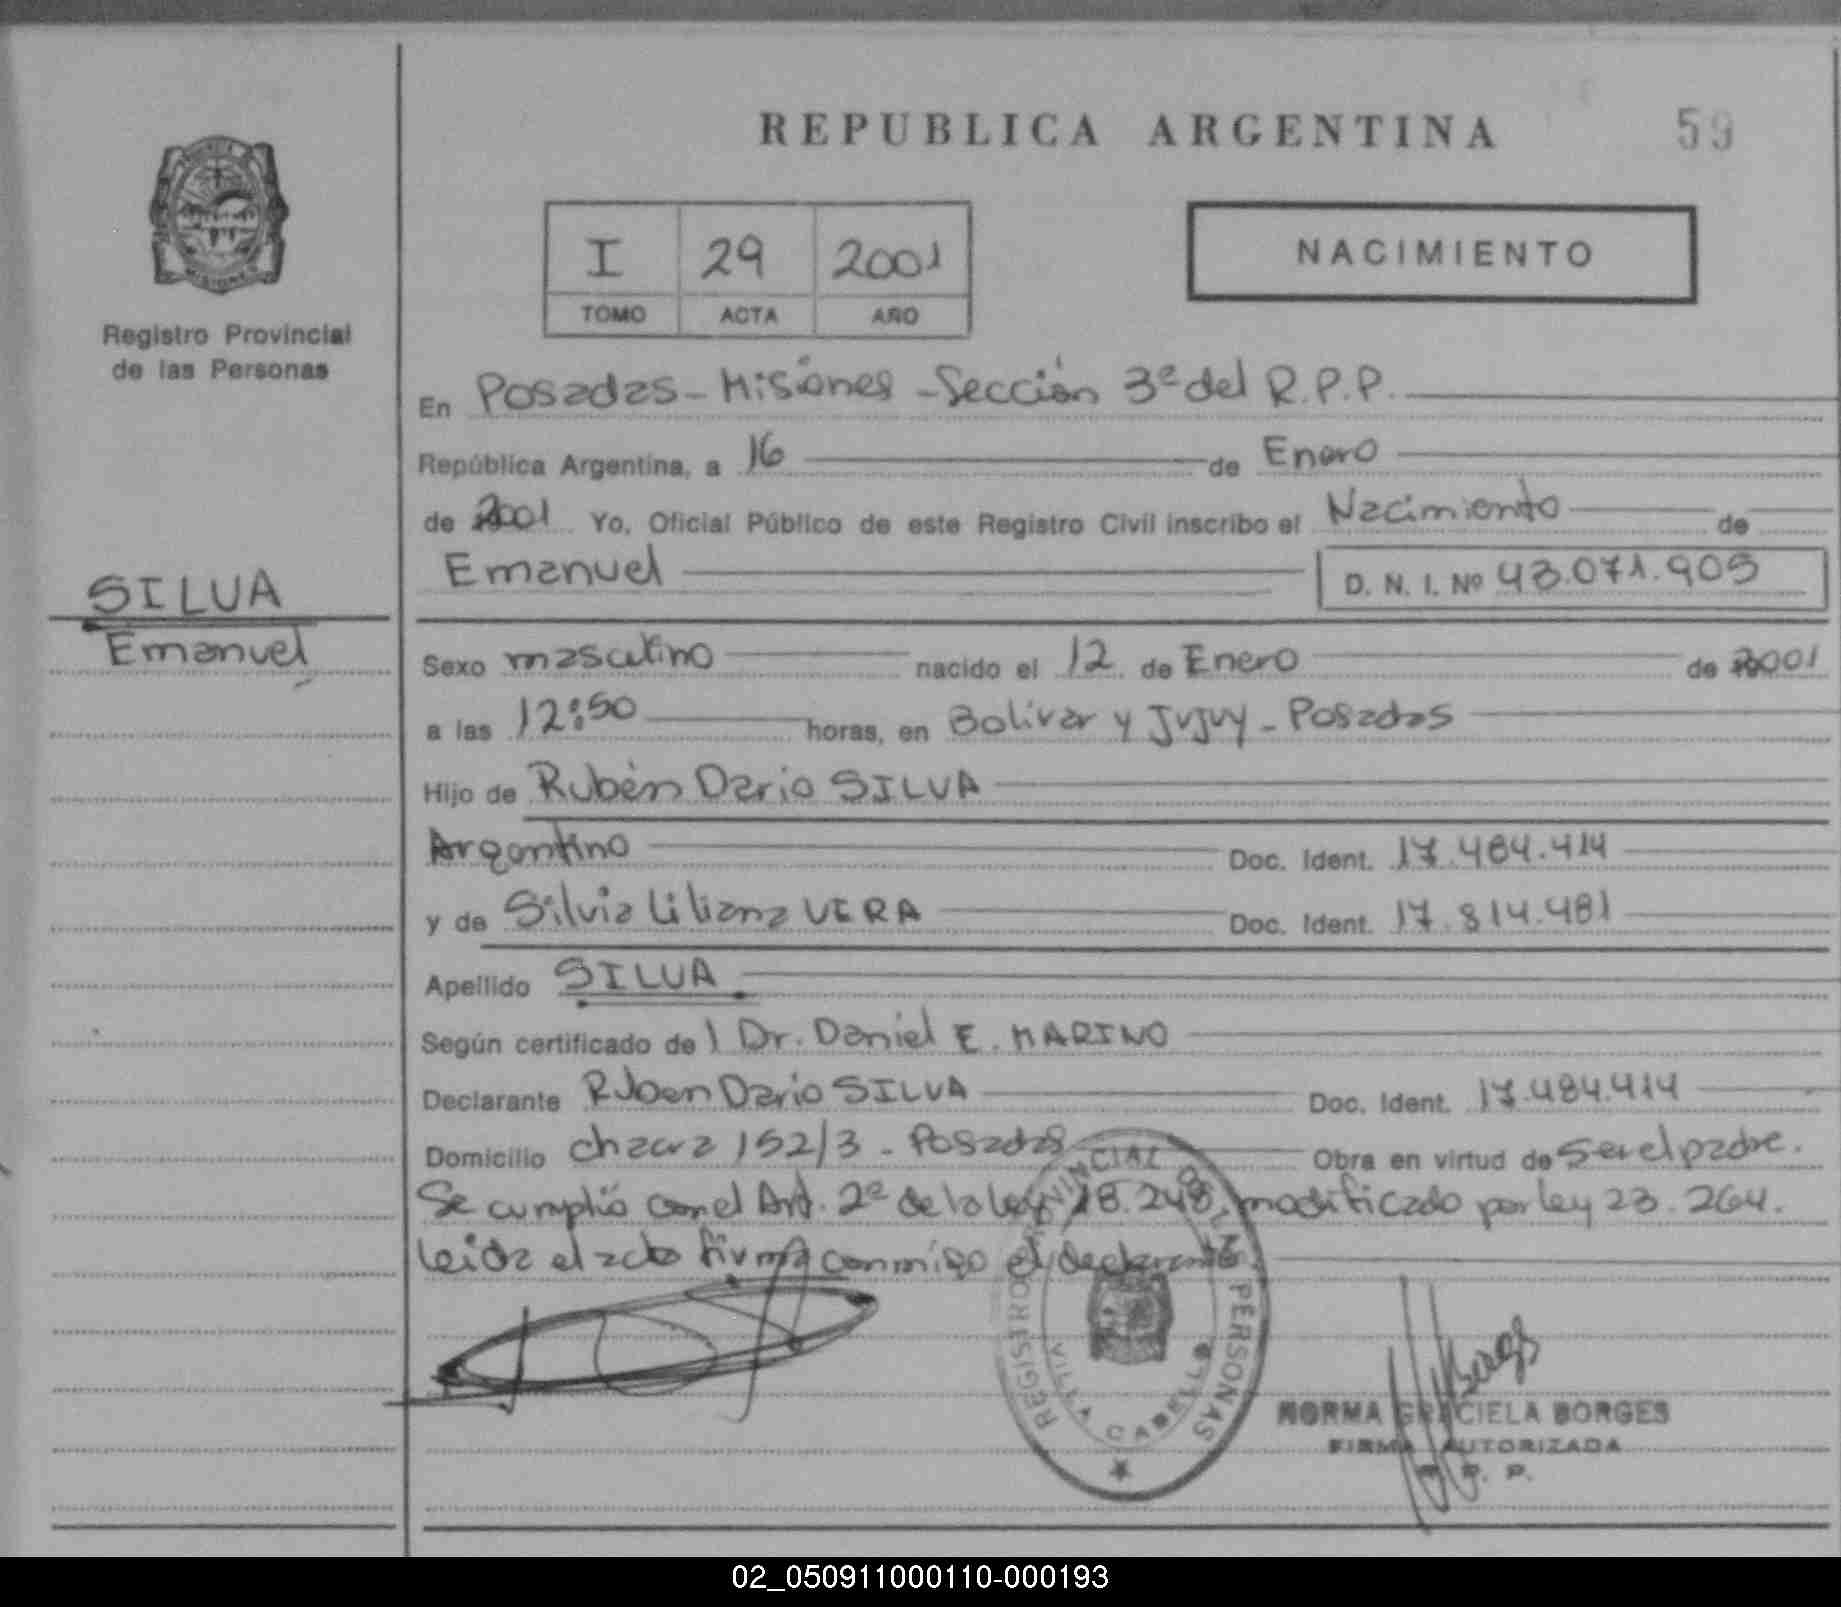 REPUBLICA ARGENTINA
59
Registro Provincial
de las Personas
I 29 2001
TOMO ACTA AÑO
NACIMIENTO
En Posadas - Misiones - Sección 3ª del R.P.P.
República Argentina, a 16 de Enero
de 2001 Yo, Oficial Público de este Registro Civil inscribo el Nacimiento de
Emanuel D. N. I. Nº 43.071.905
SILVA
Emanuel
Sexo masculino nacido el 12 de Enero de 2001
a las 12:50 horas, en Bolivar y Jujuy - Posadas
Hijo de Rubén Dario SILVA
Argentino Doc. Ident. 17.484.414
y de Silvia Liliana VERA Doc. Ident. 17.814.481
Apellido SILVA
Según certificado de l Dr. Daniel E. MARINO
Declarante Ruben Dario SILVA Doc. Ident. 17.484.414
Domicilio chacra 152/3 - Posadas Obra en virtud de ser el padre.
Se cumplió con el Art. 2º de la ley 18.248 modificado por ley 23.264.
Leida el acta firma conmigo el declarante.
REGISTRO PROVINCIAL DE LAS PERSONAS
VILLA CABELLO
NORMA GRACIELA BORGES
FIRMA AUTORIZADA
R. P. P.
02_050911000110-000193